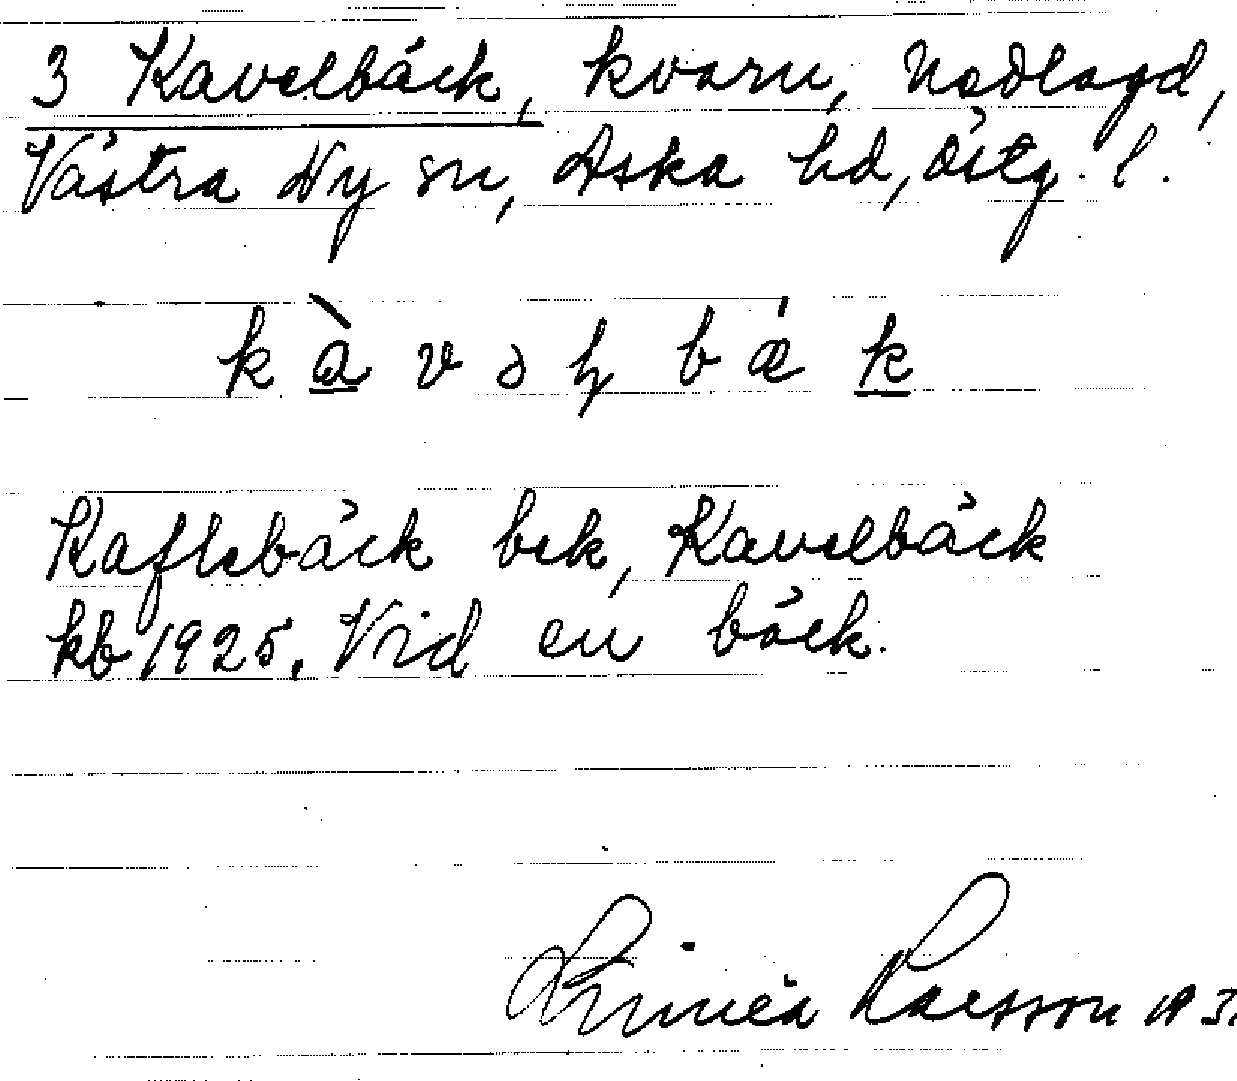 3 Kavelbäck, kvarn, nedlagd,
Västra Ny sn, Aska hd, Östg. l.
k à v ə ɭ b ǽ k
Kaflebäck bek, Kavelbäck
kb 1925. Vid en bäck.
Linnéa Larsson 193